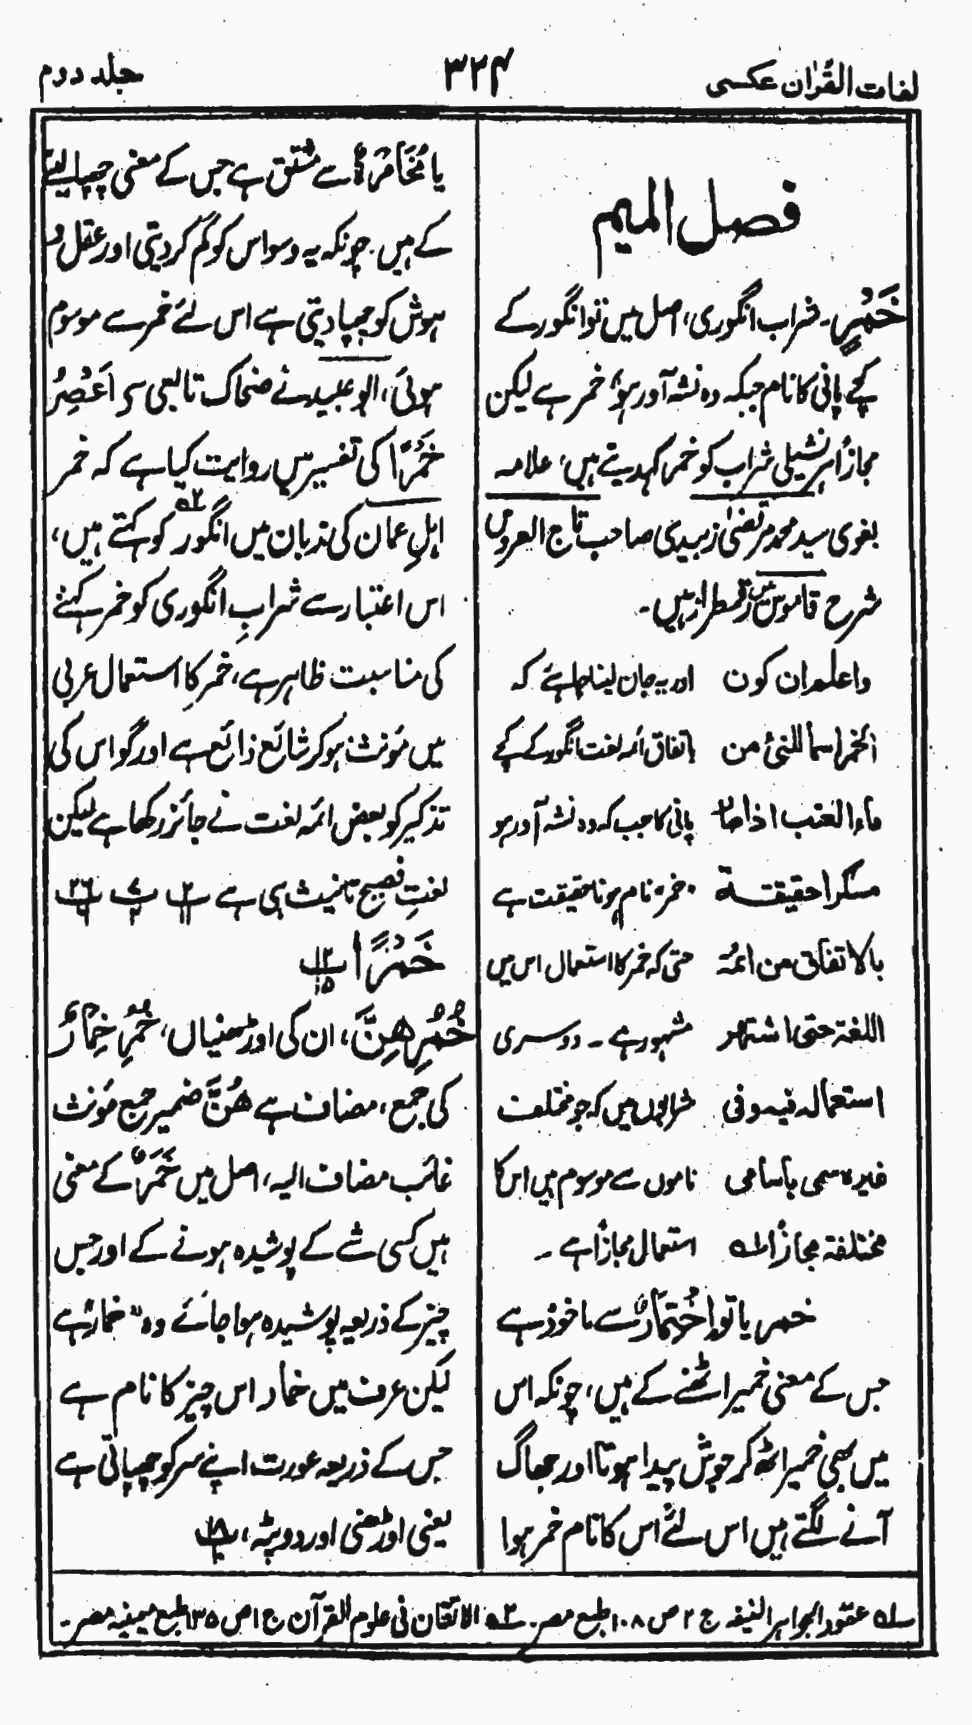 لغات القرآن عکسی
۳۲۴
جلد دوم
فصل المیم
خَمْرٍ۔ شراب انگوری، اصل میں توانگور کے
کچے پانی کا نام جبکہ وہ نشہ آور ہو، خمر ہے لیکن
مجازاً ہر نشیلی شراب کو خمر کہہ دیتے ہیں، علامہ
لغوی سید محمد مرتضیٰ زبیدی صاحب تاج العروس
شرح قاموس میں رقمطراز ہیں۔
واعلم ان کون اور یہ جان لینا چاہئے کہ
الخمر اسماً للنئ من باتفاق ائمہ لغت انگور کے کچے
ماء العنب اذا صار پانی کا جب کہ وہ نشہ آور ہو
مسکرا حقیقة خمر نام ہونا حقیقت ہے
بالاتفاق من ائمة حتی کہ خمر کا استعمال اس میں
اللغة حتی اشتهر مشہور ہے۔ دوسری
استعماله فیه وفی شرابوں میں کہ جو مختلف
غیره سمی باسامی ناموں سے موسوم ہیں اس کا
مختلفة مجازاً لہ استعمال مجازاً ہے۔
خمر یا تو اِخْتِمَارٌ سے ماخوذ ہے
جس کے معنی خمیر اٹھنے کے ہیں، چونکہ اس
میں بھی خمیر اٹھ کر جوش پیدا ہوتا اور جھاگ
آنے لگتے ہیں اس لئے اس کا نام خمر ہوا
یا مُخَامَرَةٌ سے مشتق ہے جس کے معنی چھپا لینے
کے ہیں۔ چونکہ یہ وسواس کو گم کر دیتی اور عقل و
ہوش کو چھپا دیتی ہے اس لئے خمر سے موسوم
ہوئی، ابو عبید نے ضحاک تابعی سے اَعْصِرُ
خَمْرًا کی تفسیر میں روایت کیا ہے کہ خمر
اہلِ عمان کی زبان میں انگور کو کہتے ہیں، ۲ہ
اس اعتبار سے شرابِ انگوری کو خمر کہنے
کی مناسبت ظاہر ہے، خمر کا استعمال عربی
میں مؤنث ہو کر شائع ذائع ہے اور گو اس کی
تذکیر کو بعض ائمہ لغت نے جائز رکھا ہے لیکن
لغتِ فصیح تانیث ہی ہے پ۲/۱۱ پ۷/۲ پ۲۶/۶
خَمْرًا پ۱۲/۱۵
خُمُرِهِنَّ، ان کی اوڑھنیاں، خُمُرٍ خِمَارٌ
کی جمع، مضاف ہے هُنَّ ضمیر جمع مؤنث
غائب مضاف الیہ، اصل میں خَمْرٌ کے معنی
ہیں کسی شے کے پوشیدہ ہونے کے اور جس
چیز کے ذریعہ پوشیدہ ہوا جائے وہ "خمار" ہے
لیکن عرف میں خمار اس چیز کا نام ہے
جس کے ذریعہ عورت اپنے سر کو چھپاتی ہے
یعنی اوڑھنی اور دوپٹہ، پ۱۸
لہ عقود الجواہر المنیفہ ج ۲ ص ۱۰۸ طبع مصر۔ ۲ہ الاتقان فی علوم القرآن ج ۱ ص ۱۳۵ طبع میمنیہ مصر۔